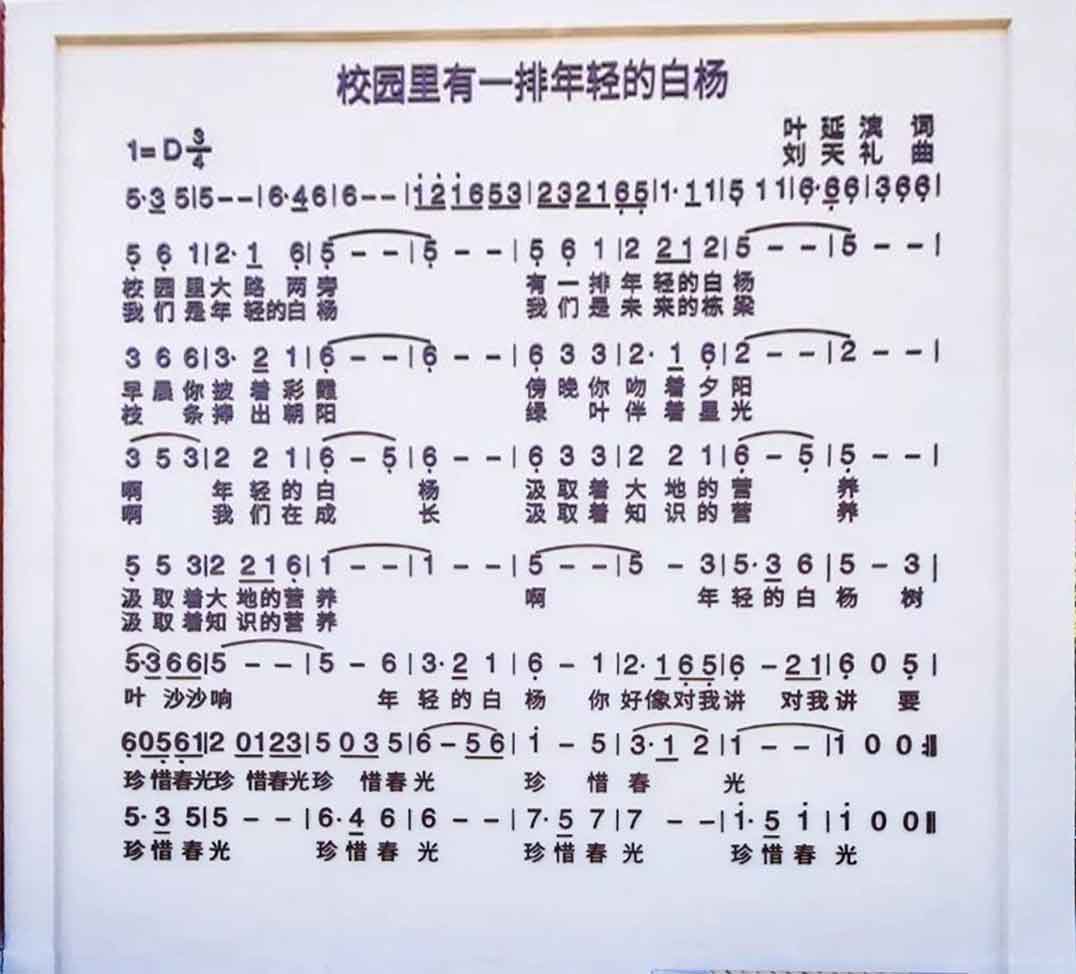 校园里有一排年轻的白杨
叶延滨 词
1=D 3/4
刘天礼 曲
5·3 5|5--|6·46|6--|i2i653|232165|1·11|5 11|6·66|366|
5 6 1|2· 1 6|5 - - |5 - - |5 6 1 |2 21 2|5 - - |5 - - |
校园里大路两旁 有一排年轻的白杨
我们是年轻的白杨 我们是未来的栋梁
3 6 6|3· 2 1|6 - - |6 - - |6 3 3|2· 1 6|2 - - |2 - - |
早晨你披着彩霞 傍晚你吻着夕阳
枝条擤出朝阳 绿叶伴着星光
3 5 3|2 2 1|6 - 5|6 - - |6 3 3|2 2 1|6 - 5|5 - - |
啊 年轻的白杨 汲取着大地的营养
啊 我们在成长 汲取着知识的营养
5 5 3|2 21 6|1 - - |1 - - |5 - - |5 - 3|5·3 6|5 - 3|
汲取着大地的营养 啊 年轻的白杨树
汲取着知识的营养
5·3 66|5 - - |5 - 6|3·2 1|6 - 1|2·1 65|6 - 21|6 0 5|
叶沙沙响 年轻的白杨 你好像对我讲 对我讲 要
60561|2 0123|5 03 5|6 - 56|i - 5|3·1 2|1 - - |1 0 0:‖
珍惜春光珍惜春光珍惜春光 珍惜春光
5·3 5|5 - - |6·4 6|6 - - |7·5 7|7 - - |i·5 i|i 0 0‖
珍惜春光 珍惜春光 珍惜春光 珍惜春光